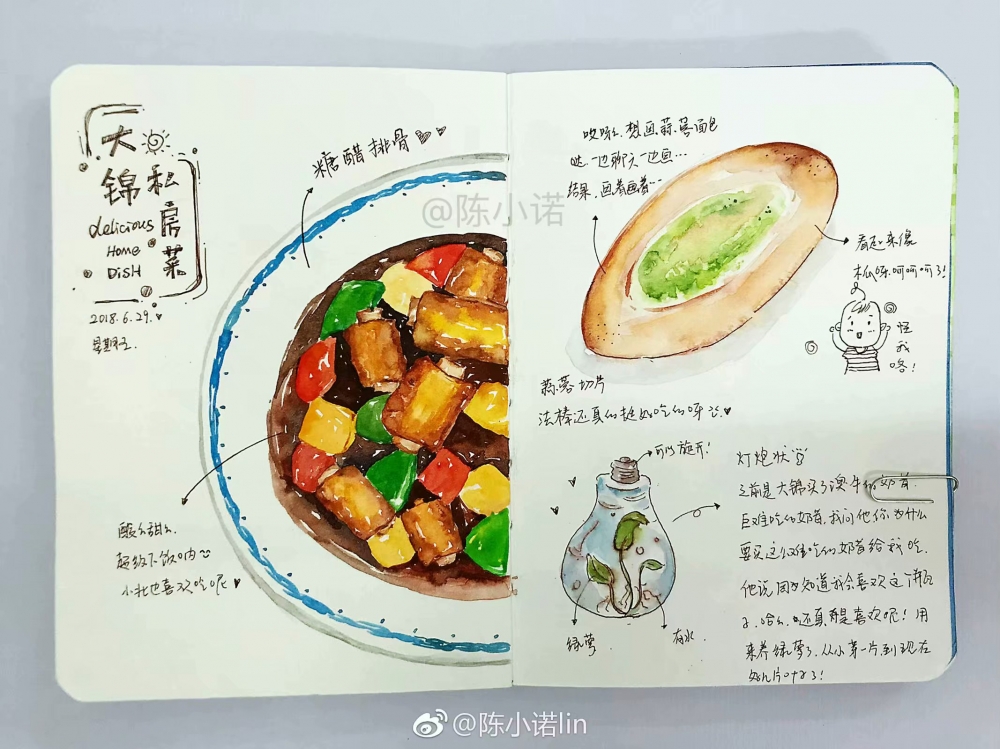 大锦私房菜
delicious
Home
DISH
2018.6.29.
星期五.
糖醋排骨
酸酸甜甜
超级下饭呐
小北也喜欢吃呢
哎呀, 想画蒜蓉面包
哒 一边聊天一边画…
结果, 画着画着…
看起来像
木瓜呀.呵呵呵了!
怪
我
咯!
蒜蓉切片
法棒还真的挺好吃的呀
可以旋开!
灯炮状
之前是大锦买了澳牛的奶昔.
巨难吃的奶昔,我问他你为什么
要买这么难吃的奶昔给我吃.
他说因为知道我会喜欢这个瓶
子.哈哈.还真是喜欢呢! 用
来养绿萝了,从小芽一片到现在
好几片叶了!
绿萝
有水.
@陈小诺
@陈小诺lin